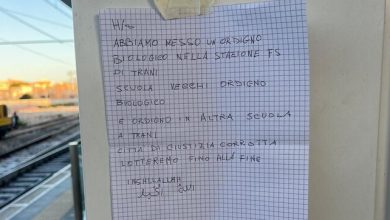 ABBIAMO MESSO UN ORDIGNO
BIOLOGICO NELLA STAZIONE FS
DI TRANI
SCUOLA VECCHI ORDIGNO
BIOLOGICO
E ORDIGNO IN ALTRA SCUOLA
A TRANI
CITTÀ DI GIUSTIZIA CORROTTA
LOTTEREMO FINO ALLA FINE
INSHLLALLAH
الله أكبر